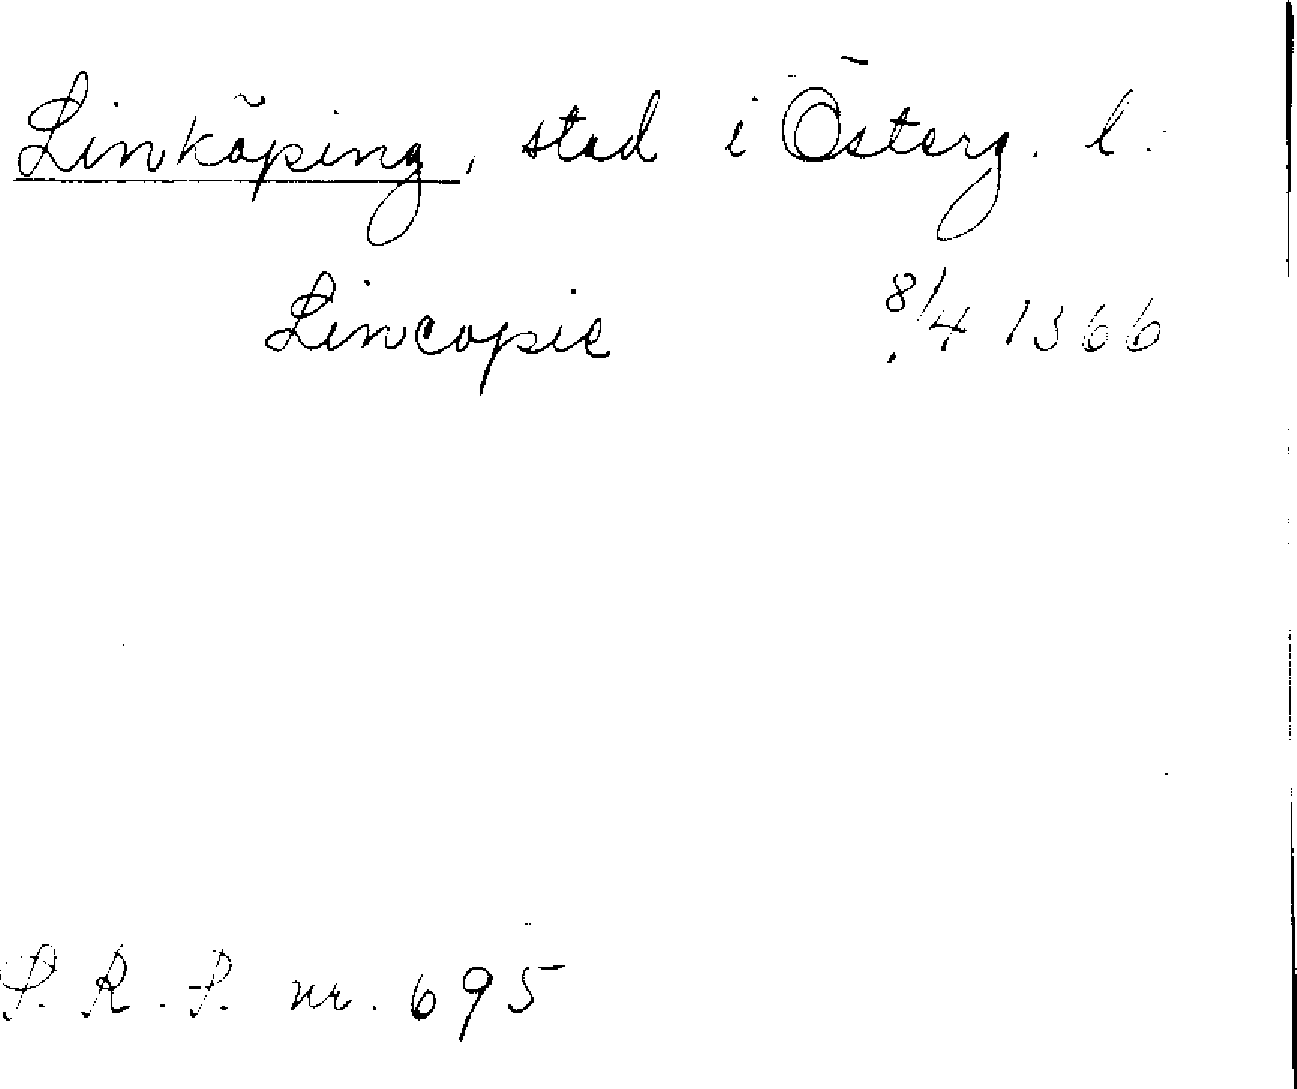 Linköping, stad i Österg. l.
Lincopie 8/4 1366
S. R. P. nr. 695